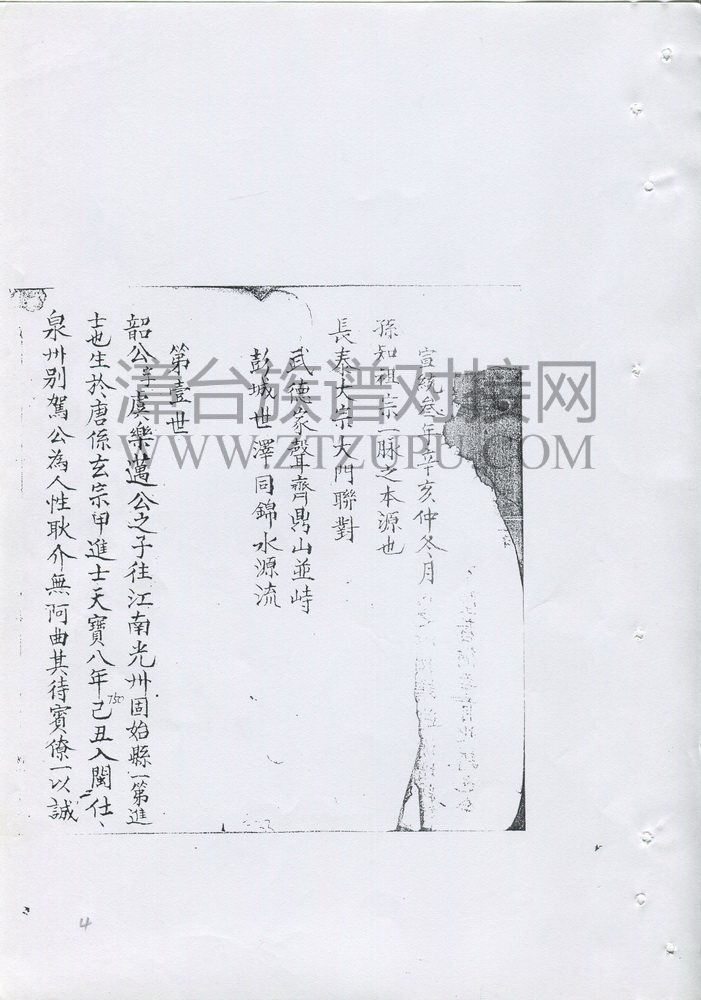 宣統叁年辛亥仲冬月
孫知祖宗一脉之本源也
長泰大宗大門聯對
武德家聲齊鼎山並峙
彭城世澤同錦水源流
第壹世
韶公字虞樂邁公之子往江南光州固始縣一第進
士也生於唐係玄宗甲進士天寶八年己丑入閩仕
750
泉州别駕公為人性耿介無阿曲其待賓僚一以誠
漳台族谱对接网
WWW.ZTZUPU.COM
4